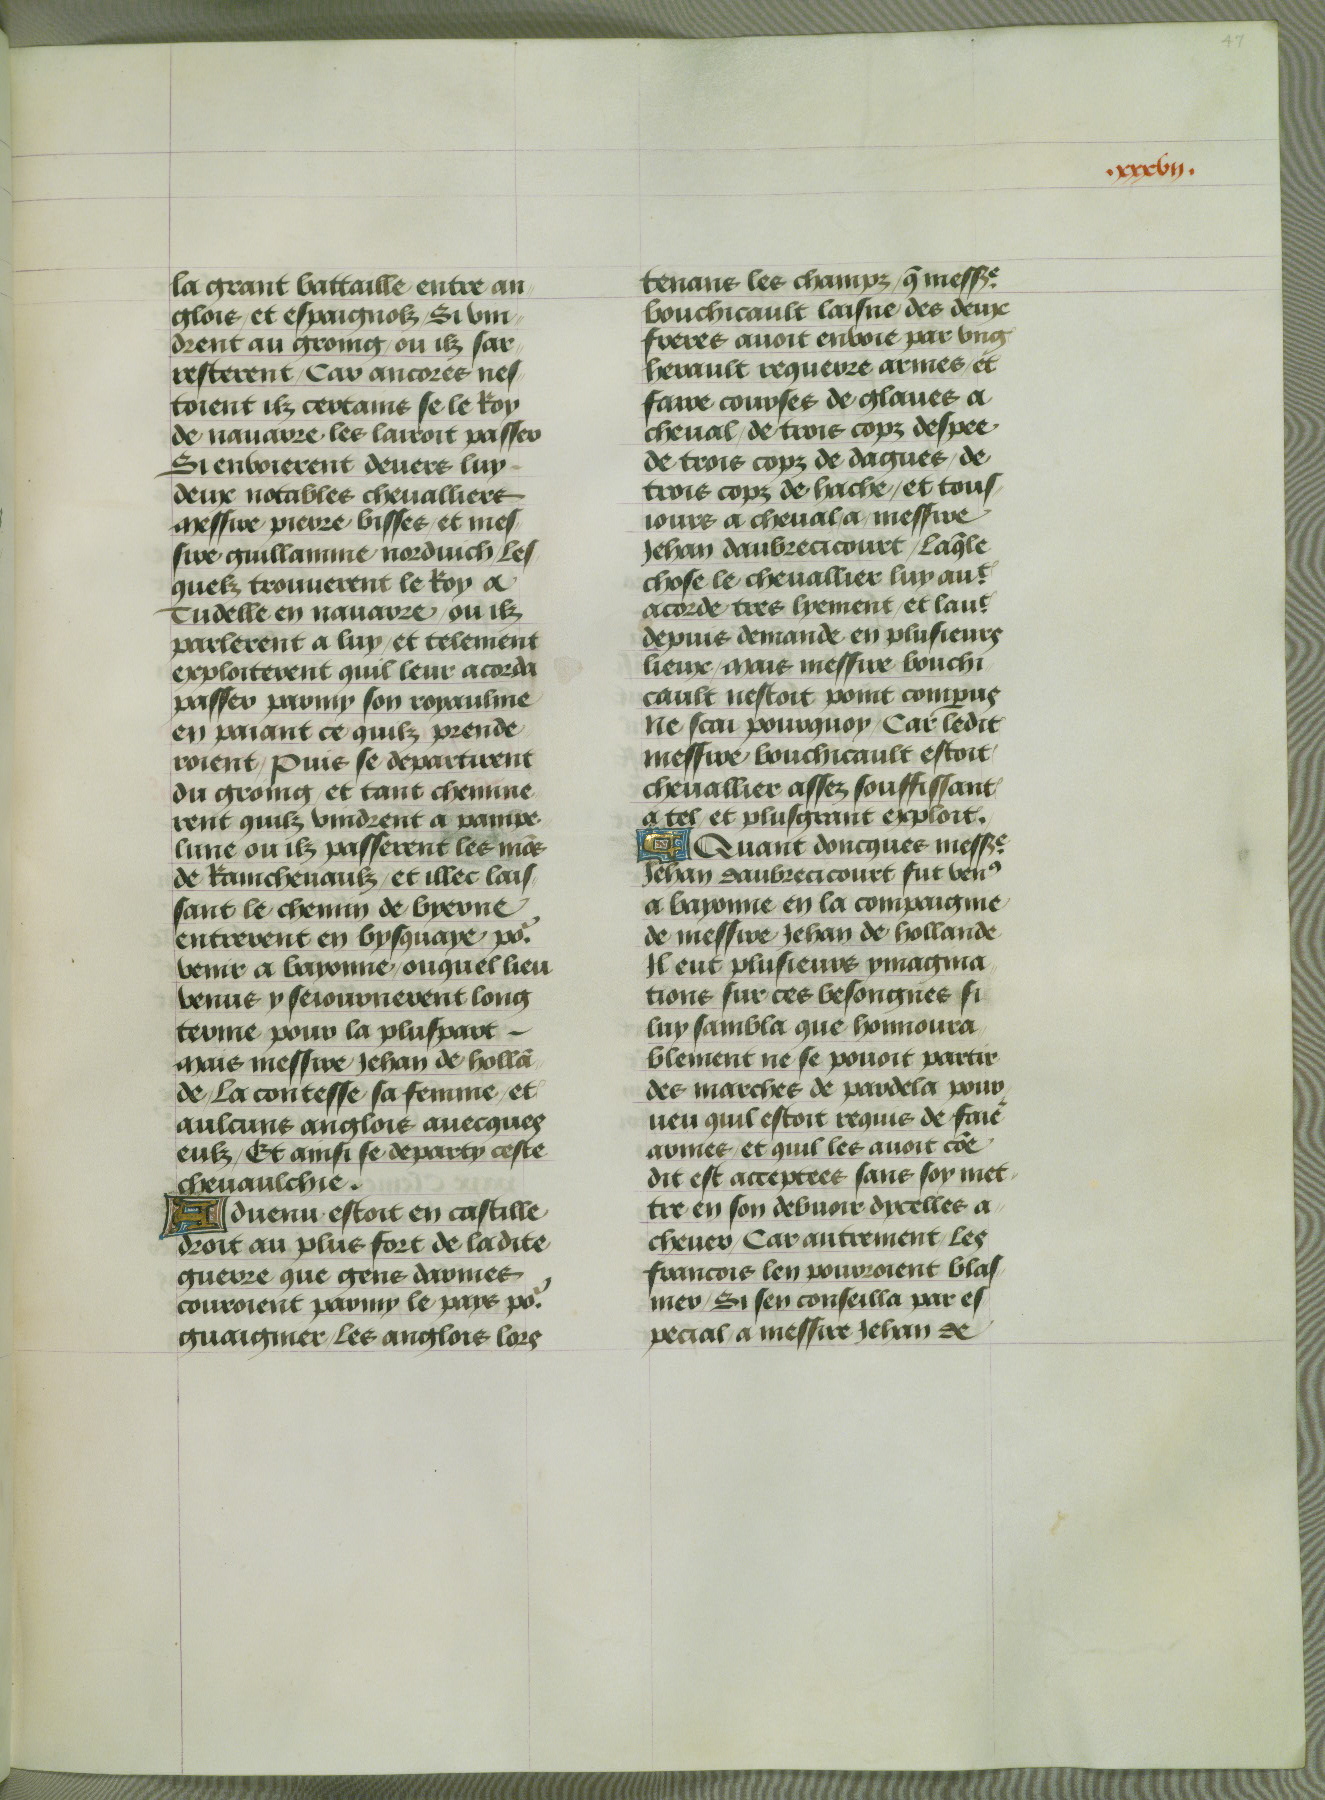 47
.xxxvij.
la grant battaille entre an
glois et espaignolz / Si vin
drent au groing ou ilz sar
resterent / Car ancores nes
toient ilz certains se le Roy
de nauarre les lairoit passer
Si enuoierent deuers luy
deux notables cheualliers
messire pierre bisses et mes
sire guillamme norduich Les
quelz trouuerent le Roy a
Tudelle en nauarre / ou ilz
parlerent a luy / et telement
exploiterent quil leur acorda
passer parmy son royaulme
en paiant ce quilz prende
roient / Puis se departirent
du groing et tant chemine
rent quilz vindrent a pampe
lune ou ilz passerent les mōs
de Raincheuaulz / et illec lais
sant le chemin de byerne
entrerent en bysquaye po.
venir a bayonne / ouquel lieu
venus y seiournerent long
terme pour la pluspart –
mais messire Jehan de hollā
de / La contesse sa femme / et
aulcuns anglois auecques
eulz / Et ainsi se departy ceste
cheuaulchie .
Aduenu estoit en castille
droit au plus fort de ladite
guerre que gens darmes
couroient parmy le pays po.
guaignier / Les anglois lors
tenans les champz / q̄ messᵉ.
bouchicault laisne des deux
freres auoit enuoie par vng
herault requerre armes / et
faire courses de glaues a
cheual / de trois copz despee
de trois copz de dagues / de
trois copz de hache / et tous
iours a cheual a messire
Jehan daubrecicourt / Laq̄le
chose le cheuallier luy auᵗ.
acorde tres lyement / et lauᵗ.
depuis demande en plusieurs
lieux / Mais messire bouchi
cault nestoit point comparus
Ne scai pourquoy / Car ledit
messire bouchicault estoit
cheuallier assez souffissant
a tel et plusgrant exploit.
Quant doncques messᵉ.
Jehan daubrecicourt fut venꝰ
a bayonne en la compaignie
de messire Jehan de hollande
Il eut plusieurs ymagina
tions sur ces besongnes si
luy sambla que honnoura
blement ne se pouoit partir
des marches de pardela pour
ueu quil estoit requis de faiē
armes / et quil les auoit cōe
dit est acceptees sans soy met
tre en son debuoir dycelles a
cheuer / Car autrement les
francois len pourroient blas
mer / Si sen conseilla par es
pecial a messire Jehan de